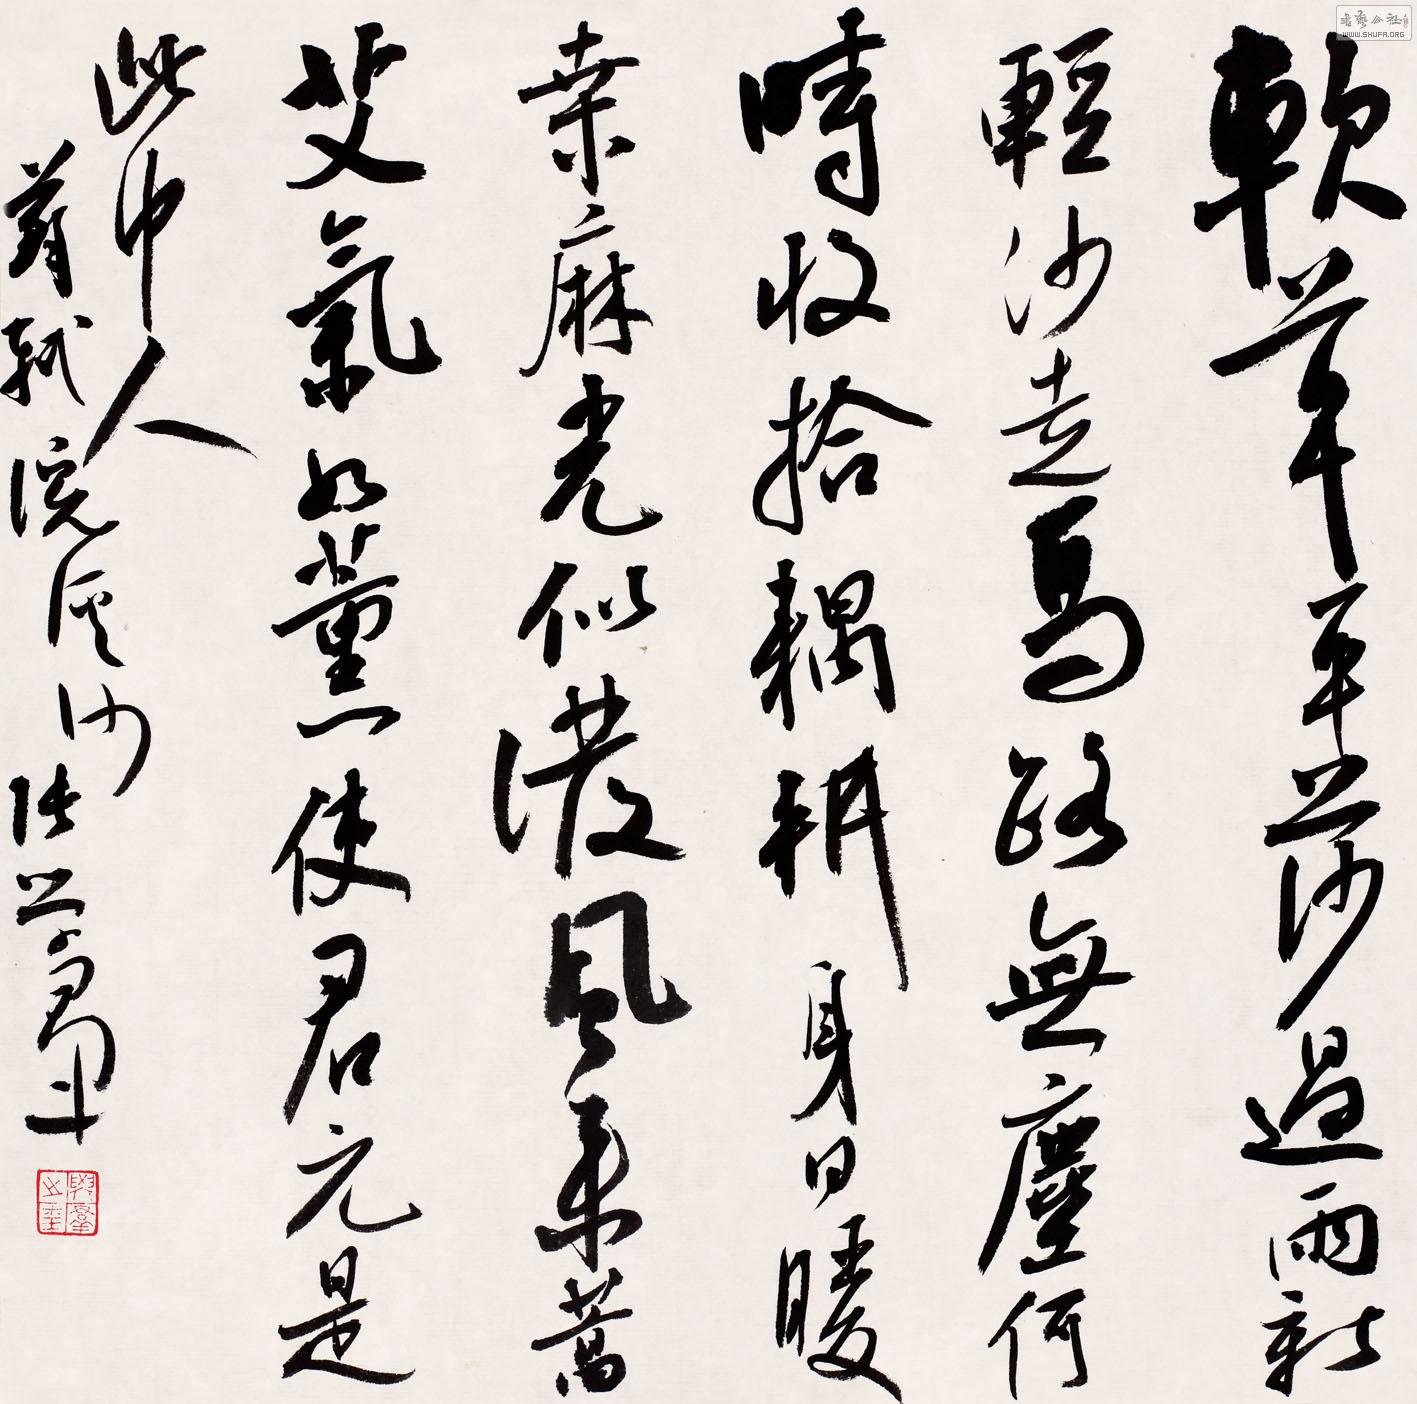 軟草平莎過雨新
輕沙走馬路無塵何
時收拾耦耕身日暖
桒麻光似潑風来蒿
艾氣如薰使君元是
此中人
蘇軾浣溪沙張
WWW.SHUFA.ORG